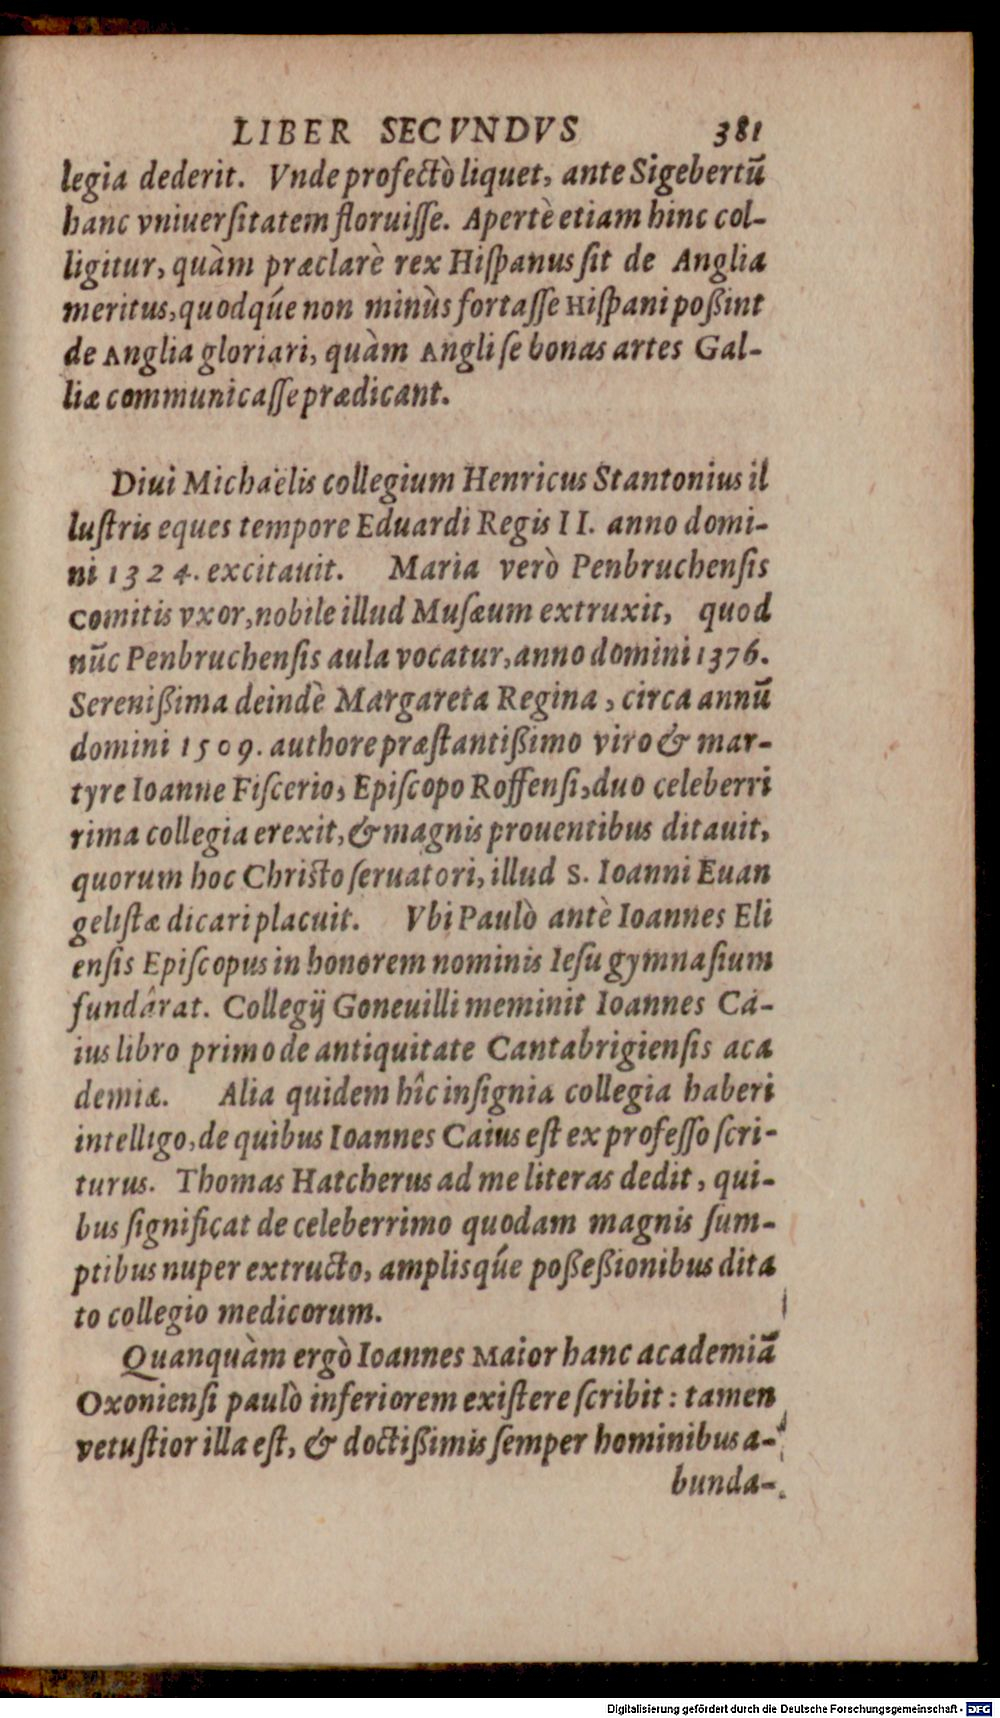 LIBER SECVNDVS 381
legia dederit. Vnde profectò liquet, ante Sigebertũ
hanc vniuerſitatem floruiſſe. Apertè etiam hinc col-
ligitur, quàm præclarè rex Hiſpanus ſit de Anglia
meritus, quodqúe non minùs fortaſſe Hiſpani poßint
de Anglia gloriari, quàm Angli ſe bonas artes Gal-
liæ communicaſſe prædicant.
Diui Michaëlis collegium Henricus Stantonius il
luſtris eques tempore Eduardi Regis II. anno domi-
ni 1324. excitauit. Maria verò Penbruchenſis
comitis vxor, nobile illud Muſæum extruxit, quod
nũc Penbruchenſis aula vocatur, anno domini 1376.
Serenißima deindè Margareta Regina, circa annũ
domini 1509. authore præſtantißimo viro & mar-
tyre Ioanne Fiſcerio, Epiſcopo Roffenſi, duo celeberri
rima collegia erexit, & magnis prouentibus ditauit,
quorum hoc Chriſto ſeruatori, illud S. Ioanni Euan
geliſtæ dicari placuit. Vbi Paulò antè Ioannes Eli
enſis Epiſcopus in honorem nominis Ieſu gymnaſium
fundârat. Collegij Goneuilli meminit Ioannes Ca-
ius libro primo de antiquitate Cantabrigienſis aca
demiæ. Alia quidem hîc inſignia collegia haberi
intelligo, de quibus Ioannes Caius eſt ex profeſſo ſcri-
turus. Thomas Hatcherus ad me literas dedit, qui-
bus ſignificat de celeberrimo quodam magnis ſum-
ptibus nuper extructo, amplisqúe poßeßionibus dita
to collegio medicorum.
Quanquàm ergò Ioannes Maior hanc academiã
Oxonienſi paulò inferiorem exiſtere ſcribit: tamen
vetuſtior illa eſt, & doctißimis ſemper hominibus a-
bunda-
Digitalisierung gefördert durch die Deutsche Forschungsgemeinschaft - DFG